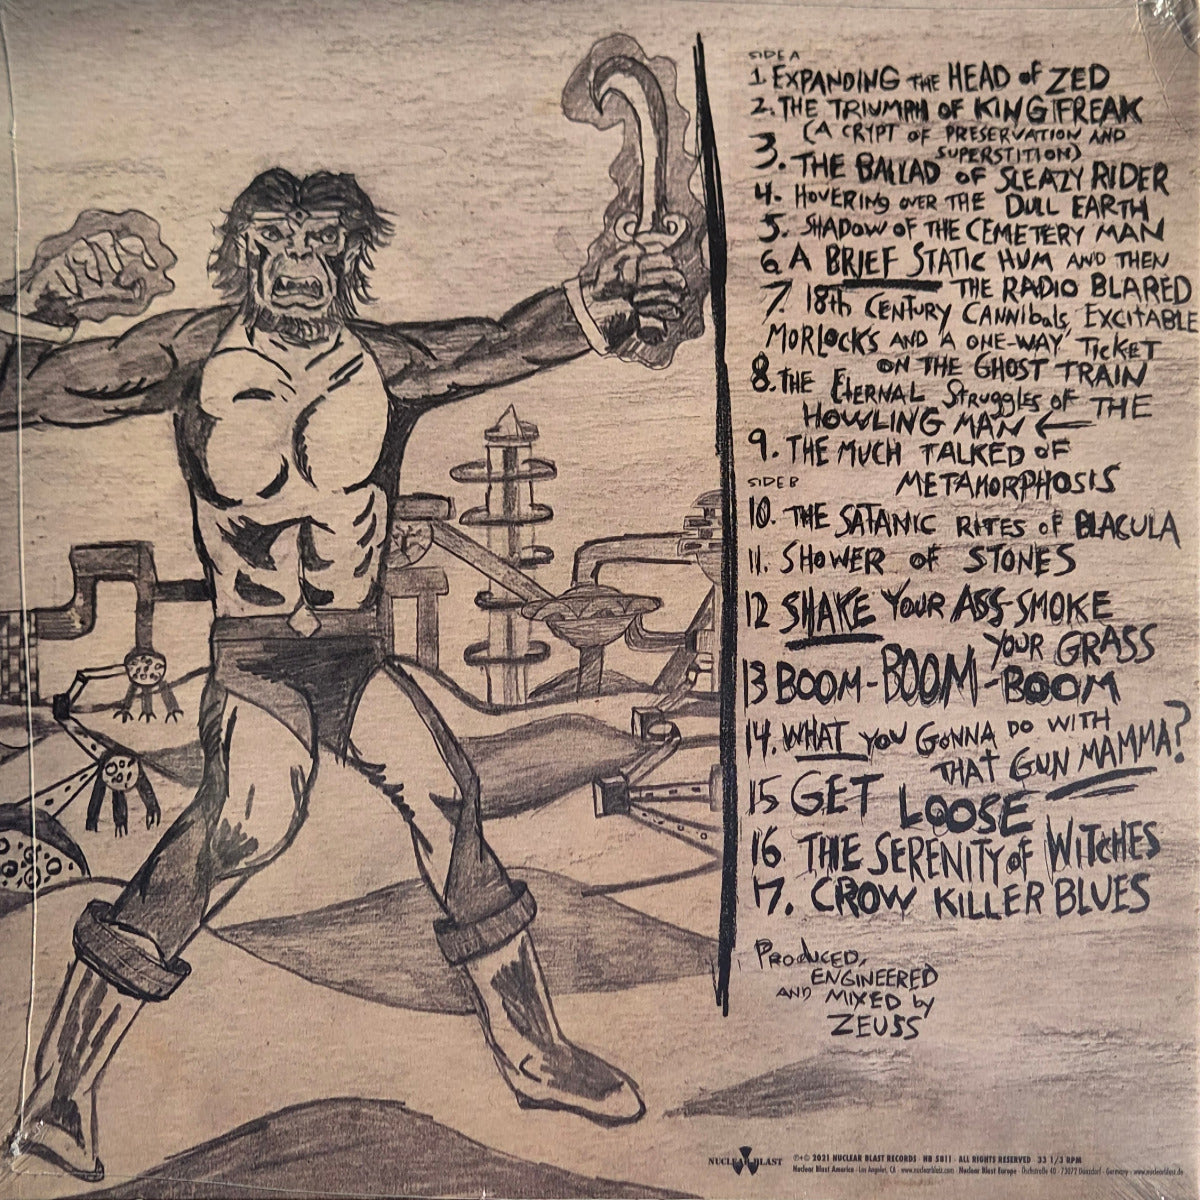 SIDE A
1. EXPANDING THE HEAD OF ZED
2. THE TRIUMPH OF KING FREAK
(A CRYPT OF PRESERVATION AND
SUPERSTITION)
3. THE BALLAD OF SLEAZY RIDER
4. HOVERING OVER THE DULL EARTH
5. SHADOW OF THE CEMETERY MAN
6 A BRIEF STATIC HUM AND THEN
THE RADIO BLARED
7. 18th CENTURY CANNIBALS, EXCITABLE
MORLOCKS AND A ONE-WAY TICKET
ON THE GHOST TRAIN
8. THE ETERNAL STRUGGLES OF THE
HOWLING MAN ←
9. THE MUCH TALKED OF
METAMORPHOSIS
SIDE B
10. THE SATANIC RITES OF BLACULA
11. SHOWER OF STONES
12 SHAKE YOUR ASS-SMOKE
YOUR GRASS
13 BOOM-BOOM-BOOM
14. WHAT YOU GONNA DO WITH
THAT GUN MAMMA?
15 GET LOOSE
16 THE SERENITY OF WITCHES
17. CROW KILLER BLUES
PRODUCED,
ENGINEERED
AND MIXED by
ZEUSS
NUCLEAR BLAST
℗+© 2021 NUCLEAR BLAST RECORDS · NB 5811 · ALL RIGHTS RESERVED · 33 1/3 RPM
Nuclear Blast America · Los Angeles, CA · www.nuclearblast.com · Nuclear Blast Europe · Oeschstraße 40 · 73072 Donzdorf · Germany · www.nuclearblast.de